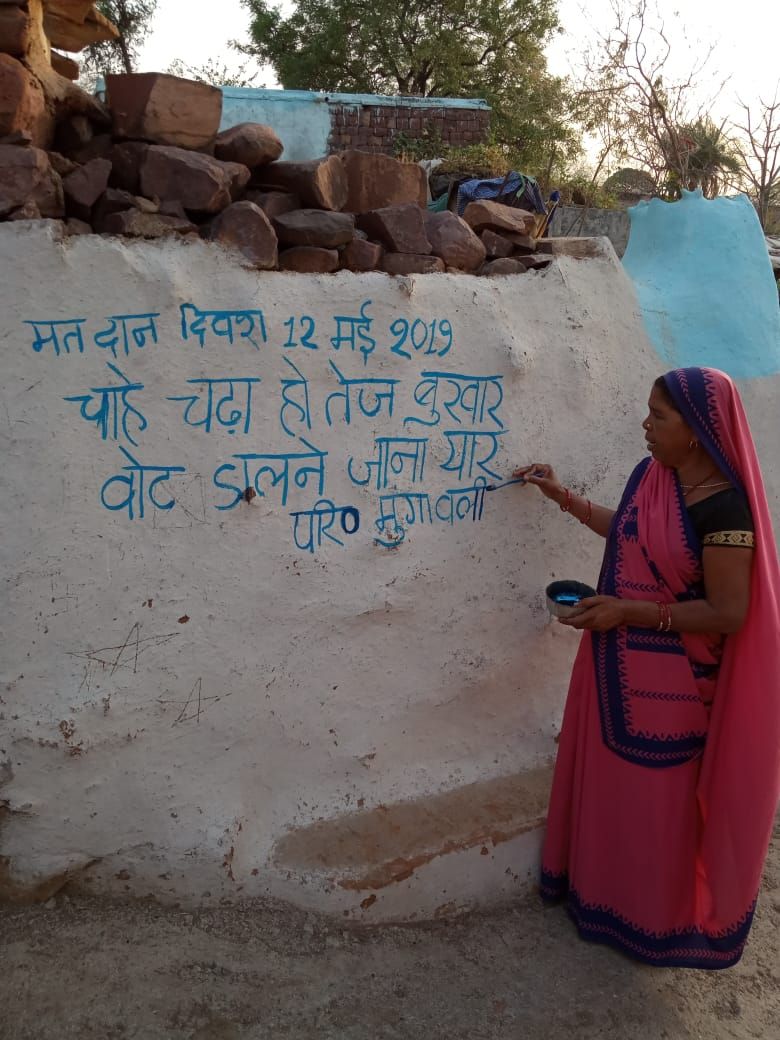 मत दान दिवस 12 मई 2019
चाहे चढ़ा हो तेज बुखार
वोट डालने जाना यार
परि० मुगावली